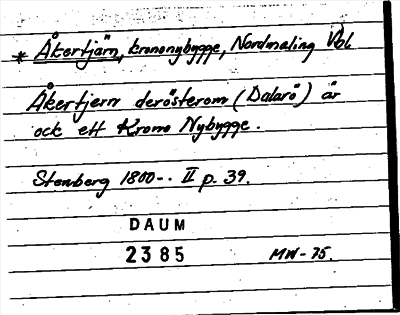 * Åkertjärn, krononybygge, Nordmaling Vbl
Åkertjern derösterom (Dalarö) är
ock ett Krono Nybygge.
Stenberg 1800-. II p. 39.
DAUM
2385 MW-75.